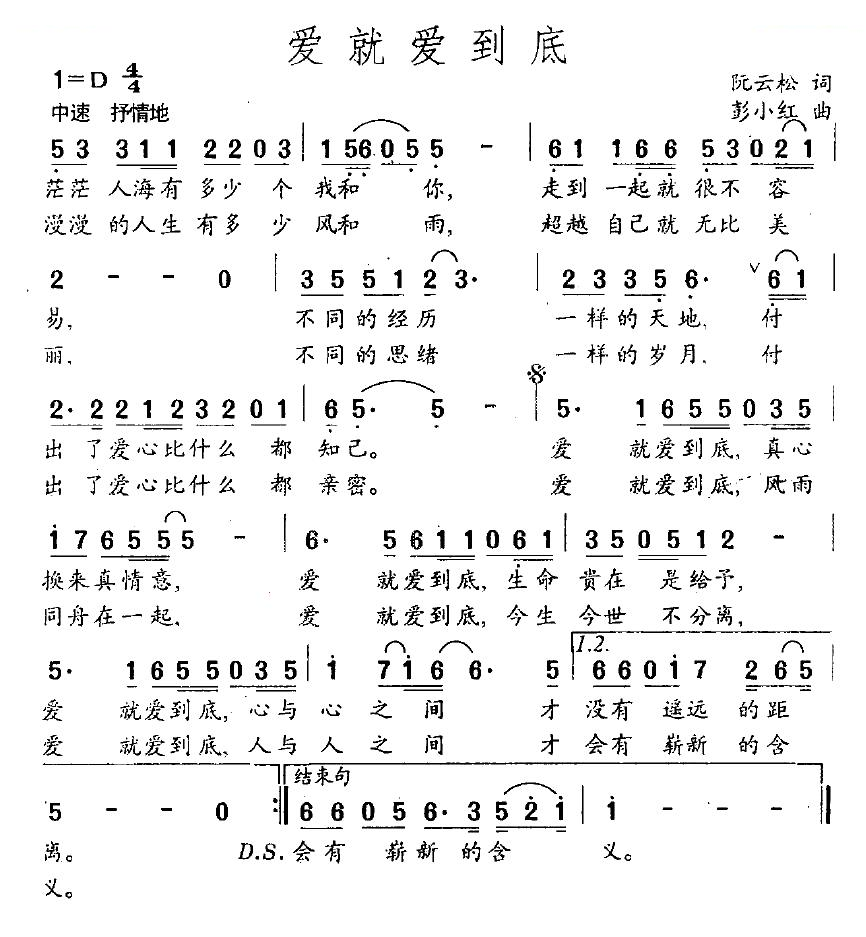 爱就爱到底
1=D 4/4
阮云松 词
中速 抒情地
彭小红 曲
5 3 3 1 1 2 2 0 3 | 1 5 6 0 5 5 - | 6 1 1 6 6 5 3 0 2 1 |
茫茫 人海有 多少 个 我和 你, 走到 一起就 很不 容
漫漫 的人生 有多 少 风和 雨, 超越 自己就 无比 美
2 - - 0 | 3 5 5 1 2 3· | 2 3 3 5 6· ∨ 6 1 |
易, 不同的经历 一样的天地, 付
丽, 不同的思绪 一样的岁月, 付
2· 2 2 1 2 3 2 0 1 | 6 5· 5 - | 5· 1 6 5 5 0 3 5 |
出 了爱心比什么 都 知己。 爱 就爱到底, 真心
出 了爱心比什么 都 亲密。 爱 就爱到底, 风雨
1 7 6 5 5 5 - | 6· 5 6 1 1 0 6 1 | 3 5 0 5 1 2 - |
换来真情意, 爱 就爱到底, 生命 贵在 是给予,
同舟在一起, 爱 就爱到底, 今生 今世 不分离,
1.2.
5· 1 6 5 5 0 3 5 | 1 7 1 6 6· 5 | 6 6 0 1 7 2 6 5 |
爱 就爱到底, 心与 心 之 间 才 没有 遥远 的距
爱 就爱到底, 人与 人 之 间 才 会有 崭新 的含
结束句
5 - - 0 :‖ 6 6 0 5 6· 3 5 2 1 | 1 - - - ‖
离。 D.S. 会有 崭新 的含 义。
义。